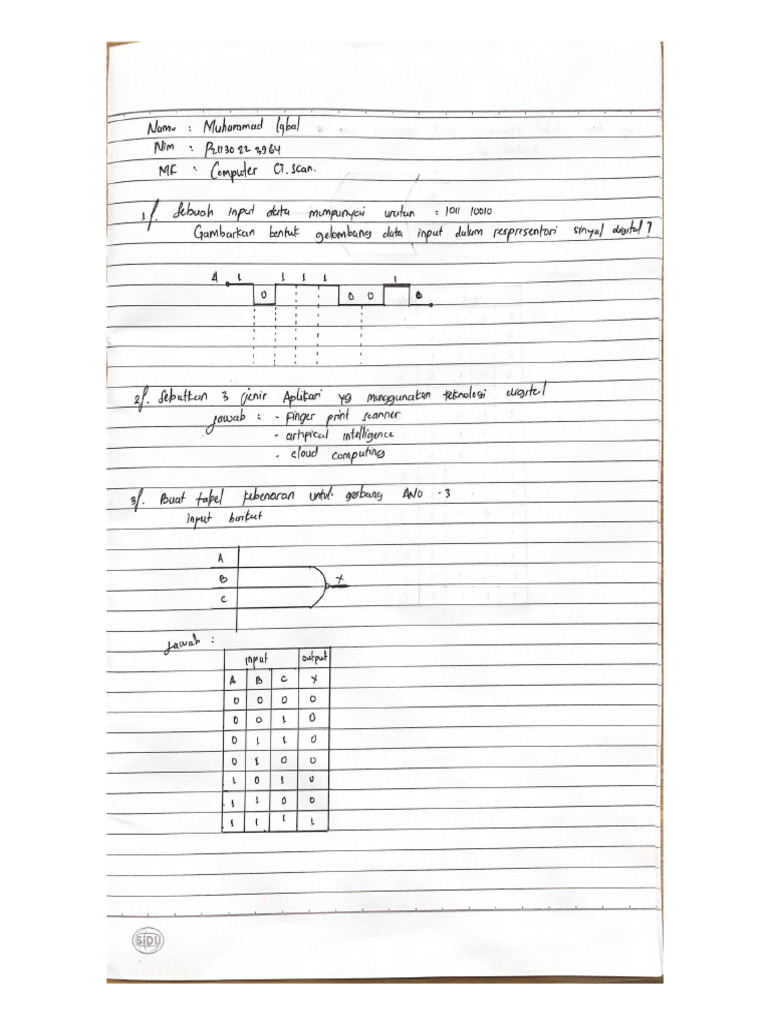 Nama : Muhammad Iqbal
Nim : P21130 22 3964
MK : Computer CT. Scan.
1/. Sebuah input data mempunyai urutan : 1011 10010
Gambarkan bentuk gelombang data input dalam respresentasi sinyal digital ?
A 1 0 1 1 1 0 0 1 0
2/. Sebutkan 3 jenis Aplikasi yg menggunakan teknologi digital
jawab : - Finger print scanner
- artipical intelligence
- cloud computing
3/. Buat tabel kebenaran untuk gerbang AND - 3
input berikut
A
B X
C
jawab :
input output
A B C X
0 0 0 0
0 0 1 0
0 1 1 0
0 1 0 0
1 0 1 0
1 1 0 0
1 1 1 1
SIDU